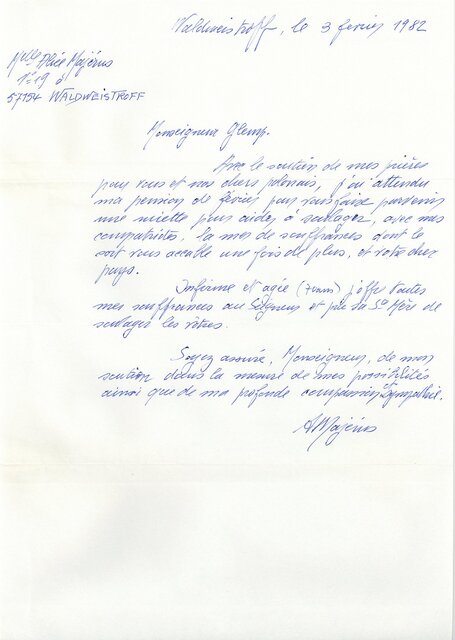 Waldweistroff, le 3 février 1982
Melle Alice Majérus
N° 19 a
57154 WALDWEISTROFF
Monseigneur Glemp.
Avec le soutien de mes prières
pour vous et nos chers polonais, j'ai attendu
ma pension de février pour vous faire parvenir
une miette pour aider à soulager, avec mes
compatriotes, la mer de souffrances dont le
sort vous accable une fois de plus, et votre cher
pays.
Infirme et agée j'offre toutes
mes souffrances au Seigneur et prie la Ste Mère de
soulager les vôtres.
Soyez assuré, Monseigneur, de mon
soutien dans la mesure de mes possibilités
ainsi que de ma profonde compassion Sympathie.
AMajérus